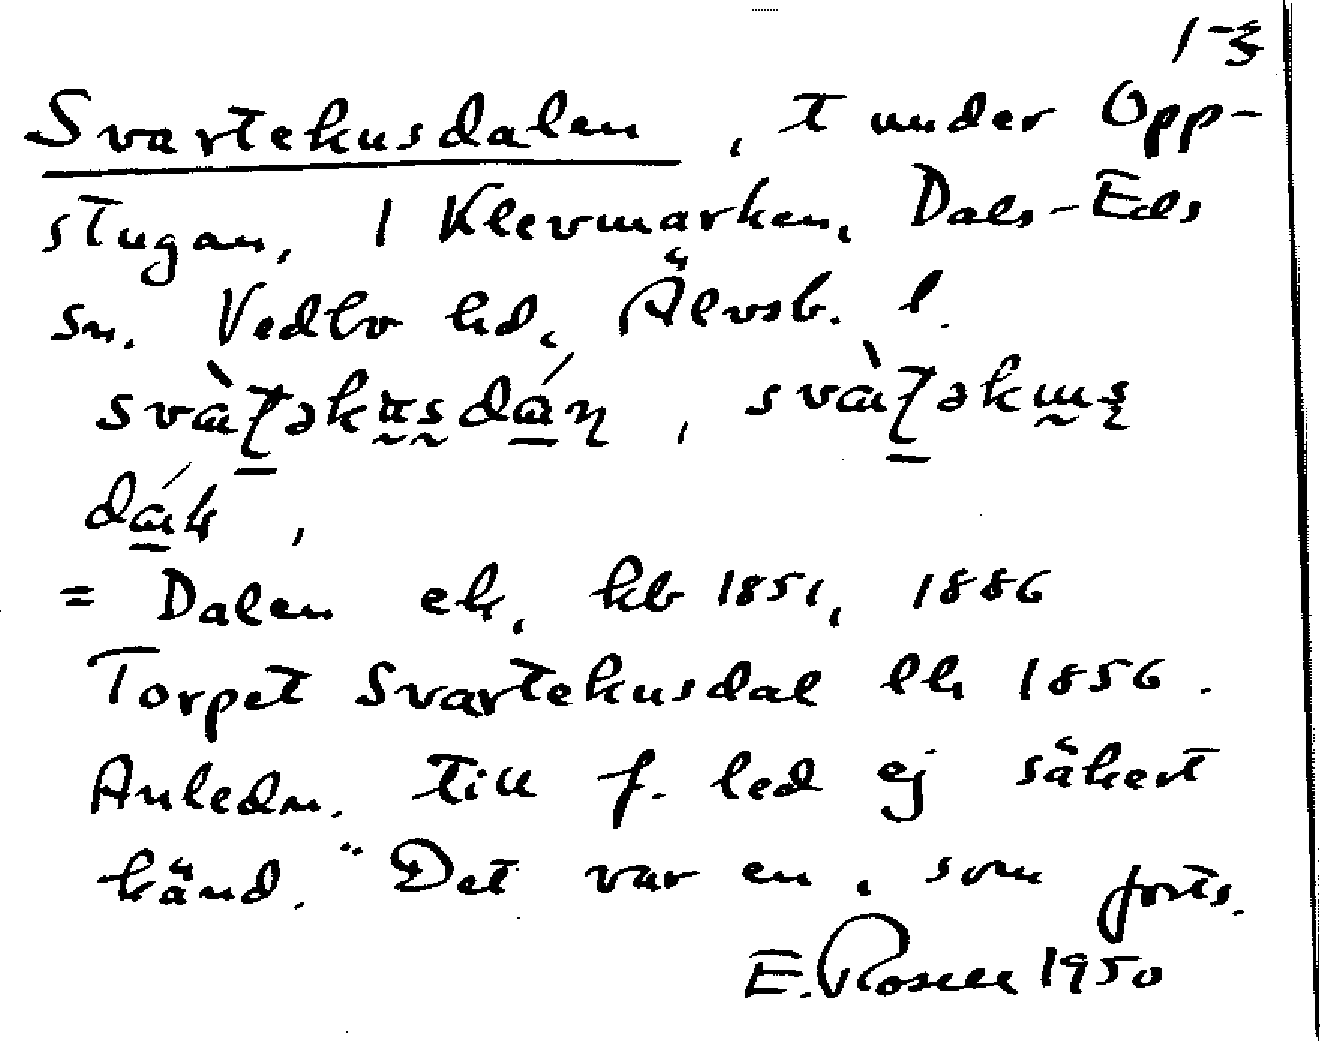 1-3
Svartekusdalen, t under Opp-
stugan, 1 Klevmarken, Dals-Eds
sn. Vedbo hd, Älvsb. l.
= Dalen ek, kb 1851, 1886
Torpet Svartekusdal lh 1856.
Anledn. till f. led ej säkert
känd. "Det var en, som forts.
E. Rosell 1950